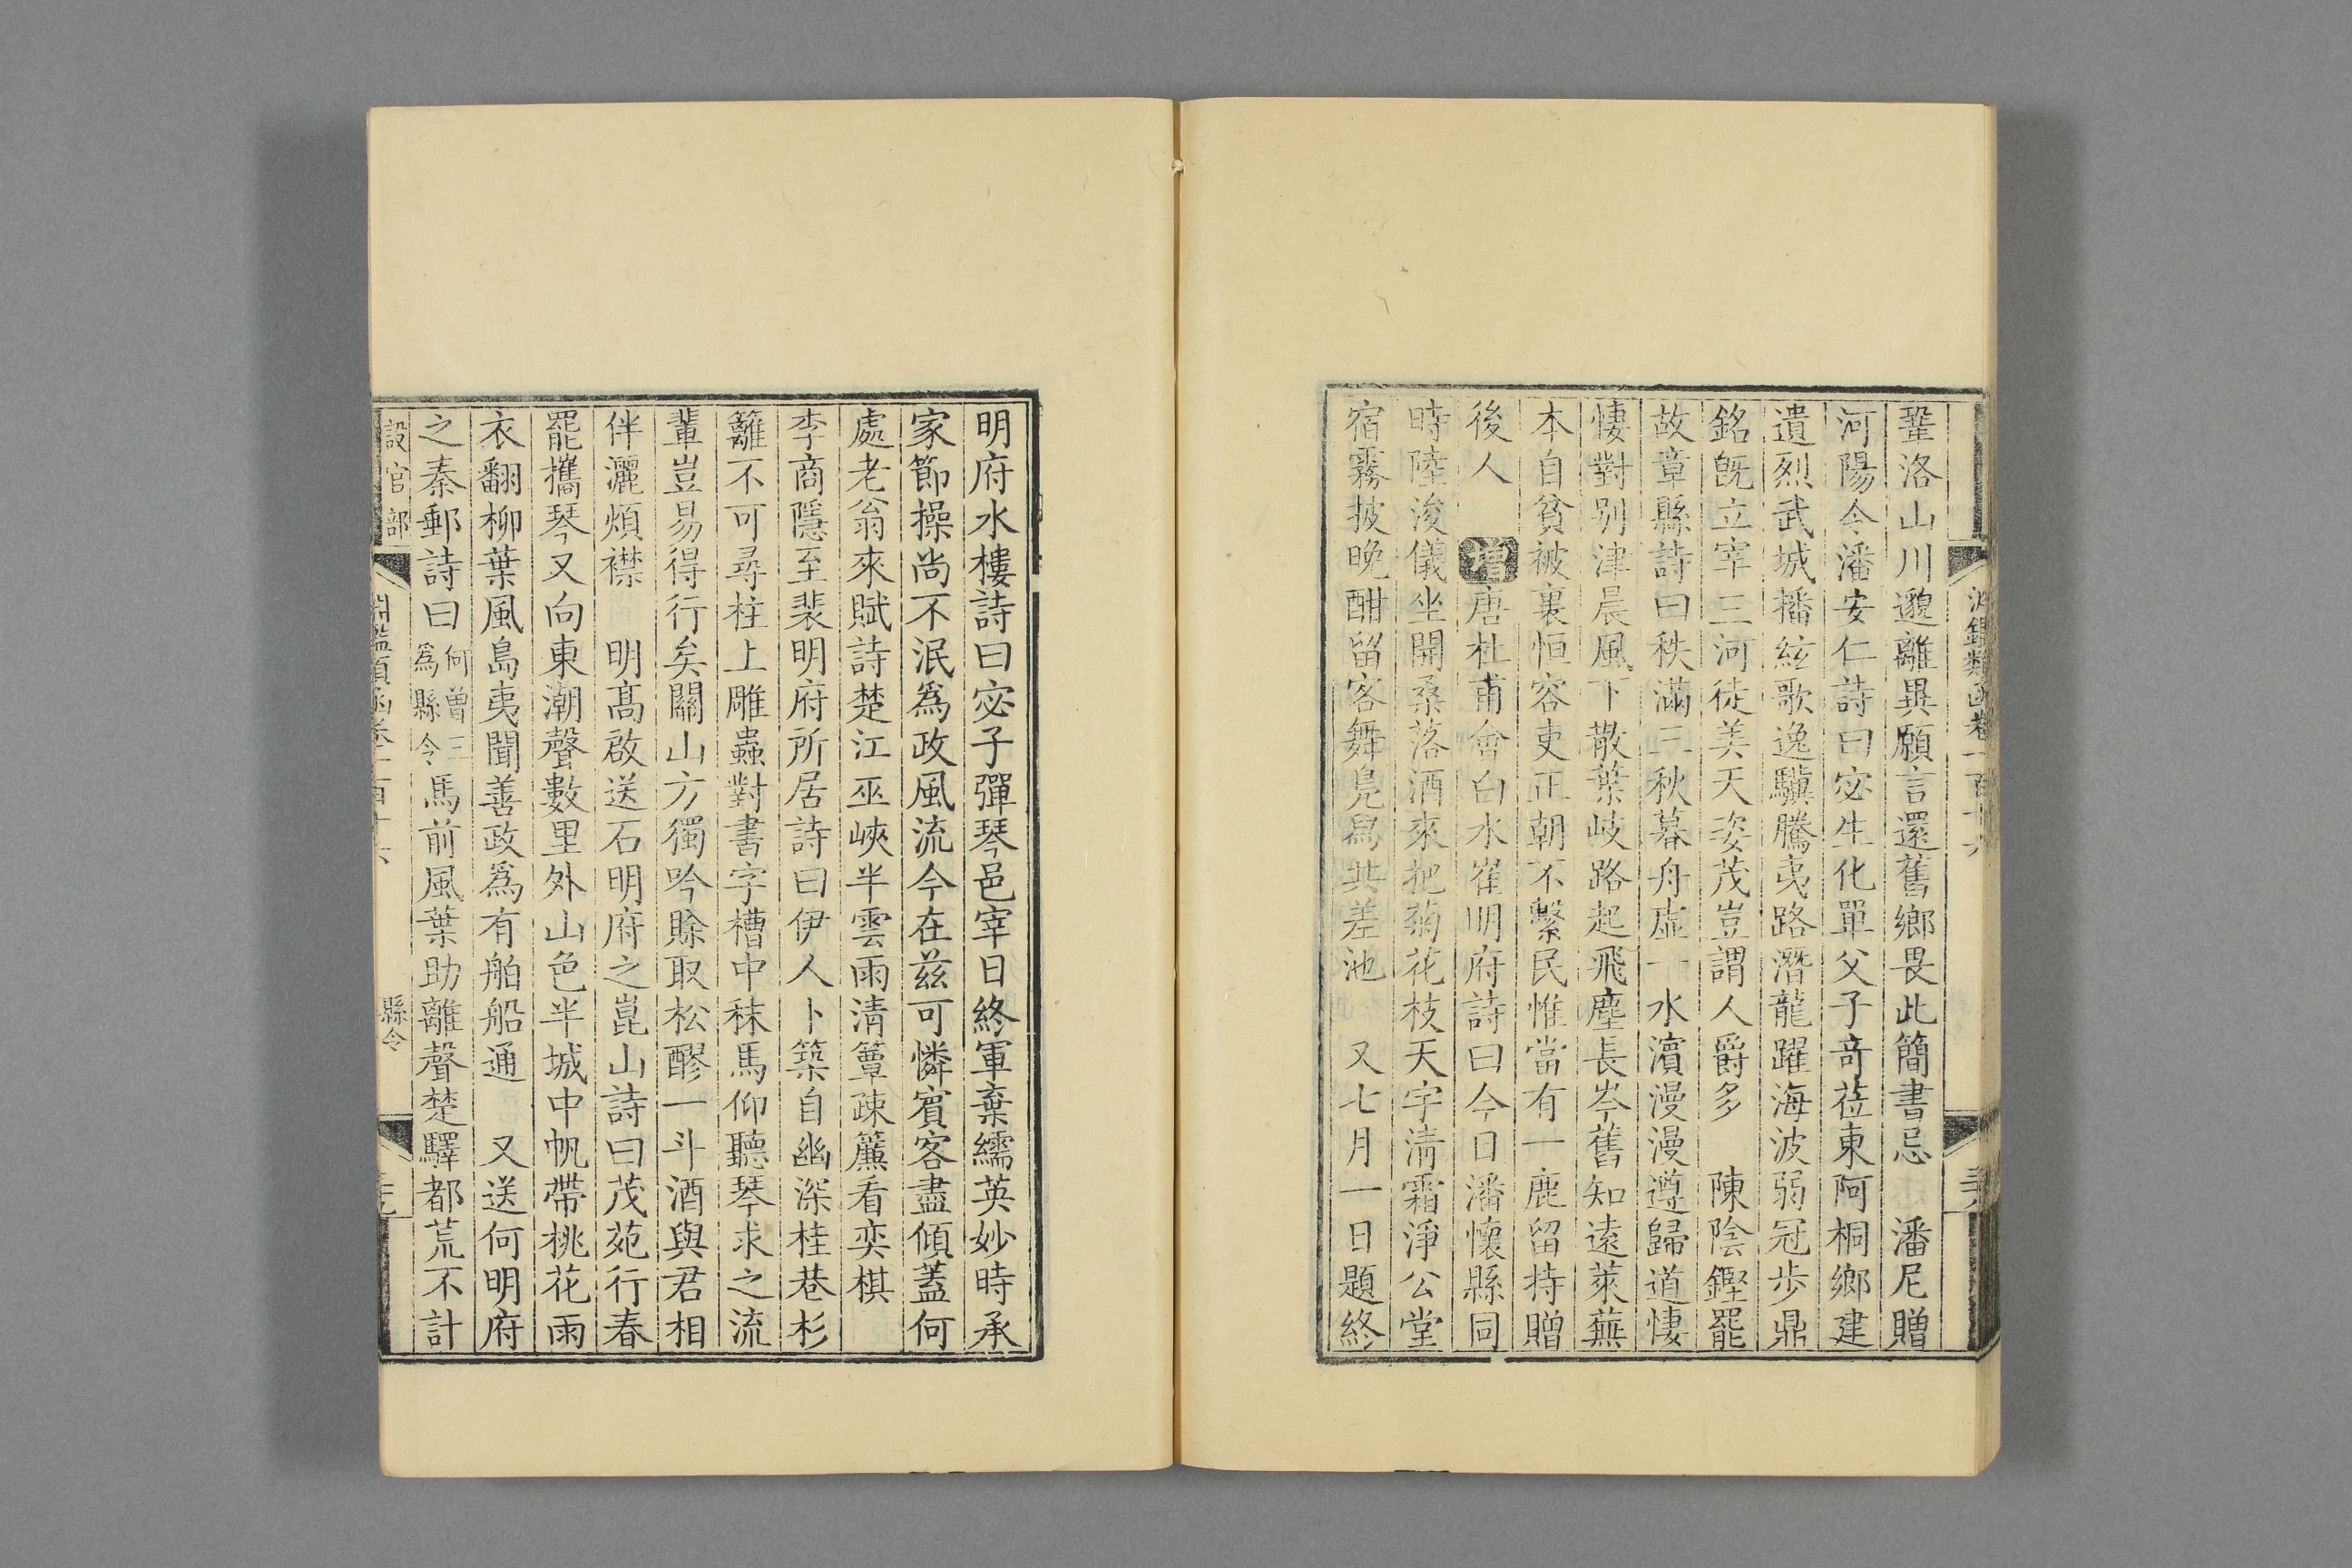 鞏洛山川邈離異願言還舊鄉畏此簡書忌　潘尼贈
河陽令潘安仁詩曰宓生化單父子奇莅東阿桐鄉建
遺烈武城播絃歌逸驥騰夷路潛龍躍海波弱冠步鼎
銘旣立宰三河徒美天姿茂豈謂人爵多　陳陰鏗罷
故章縣詩曰秩滿三秋暮舟虛一水濱漫漫遵歸道悽
悽對別津晨風下散葉岐路起飛塵長岑舊知遠萊蕪
本自貧被裏恒容吏正朝不繫民惟當有一鹿留持贈
後人　增唐杜甫會白水崔明府詩曰今日潘懷縣同
時陸浚儀坐開桑落酒來把菊花枝天宇清霜淨公堂
宿霧披晚酣留客舞鳧舄共差池　又七月一日題終
明府水樓詩曰宓子彈琴邑宰日終軍棄繻英妙時承
家節操尚不泯爲政風流今在兹可憐賓客盡傾蓋何
處老翁來賦詩楚江巫峽半雲雨清簟疎簾看奕棋
李商隱至裴明府所居詩曰伊人卜築自幽深桂巷杉
籬不可尋柱上雕蟲對書字槽中秣馬仰聽琴求之流
輩豈易得行矣關山方獨吟賖取松醪一斗酒與君相
伴灑煩襟　明高啟送石明府之崑山詩曰茂苑行春
罷攜琴又向東潮聲數里外山色半城中帆帶桃花雨
衣翻柳葉風島夷聞善政爲有舶船通　又送何明府
之秦郵詩曰何曾三爲縣令馬前風葉助離聲楚驛都荒不計
設官部　淵鑑類函卷一百十六　縣令